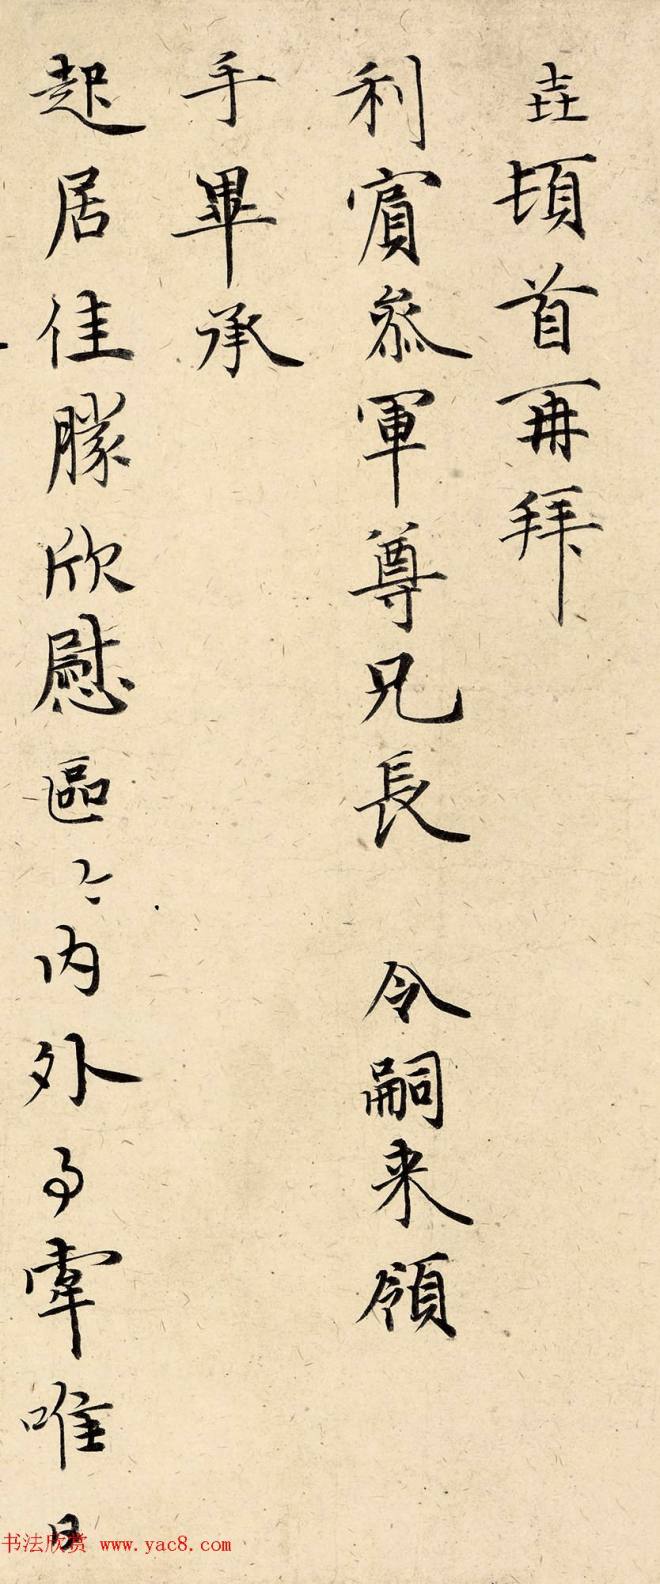 垚頓首再拜
利賔叅軍尊兄長 令嗣来領
手畢承
起居佳勝欣慰區々内外唯日
书法欣赏 www.yac8.com